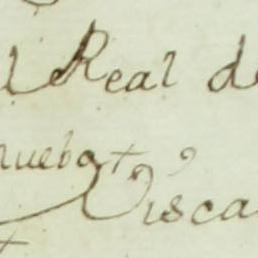 l Real de
nueba + Visca